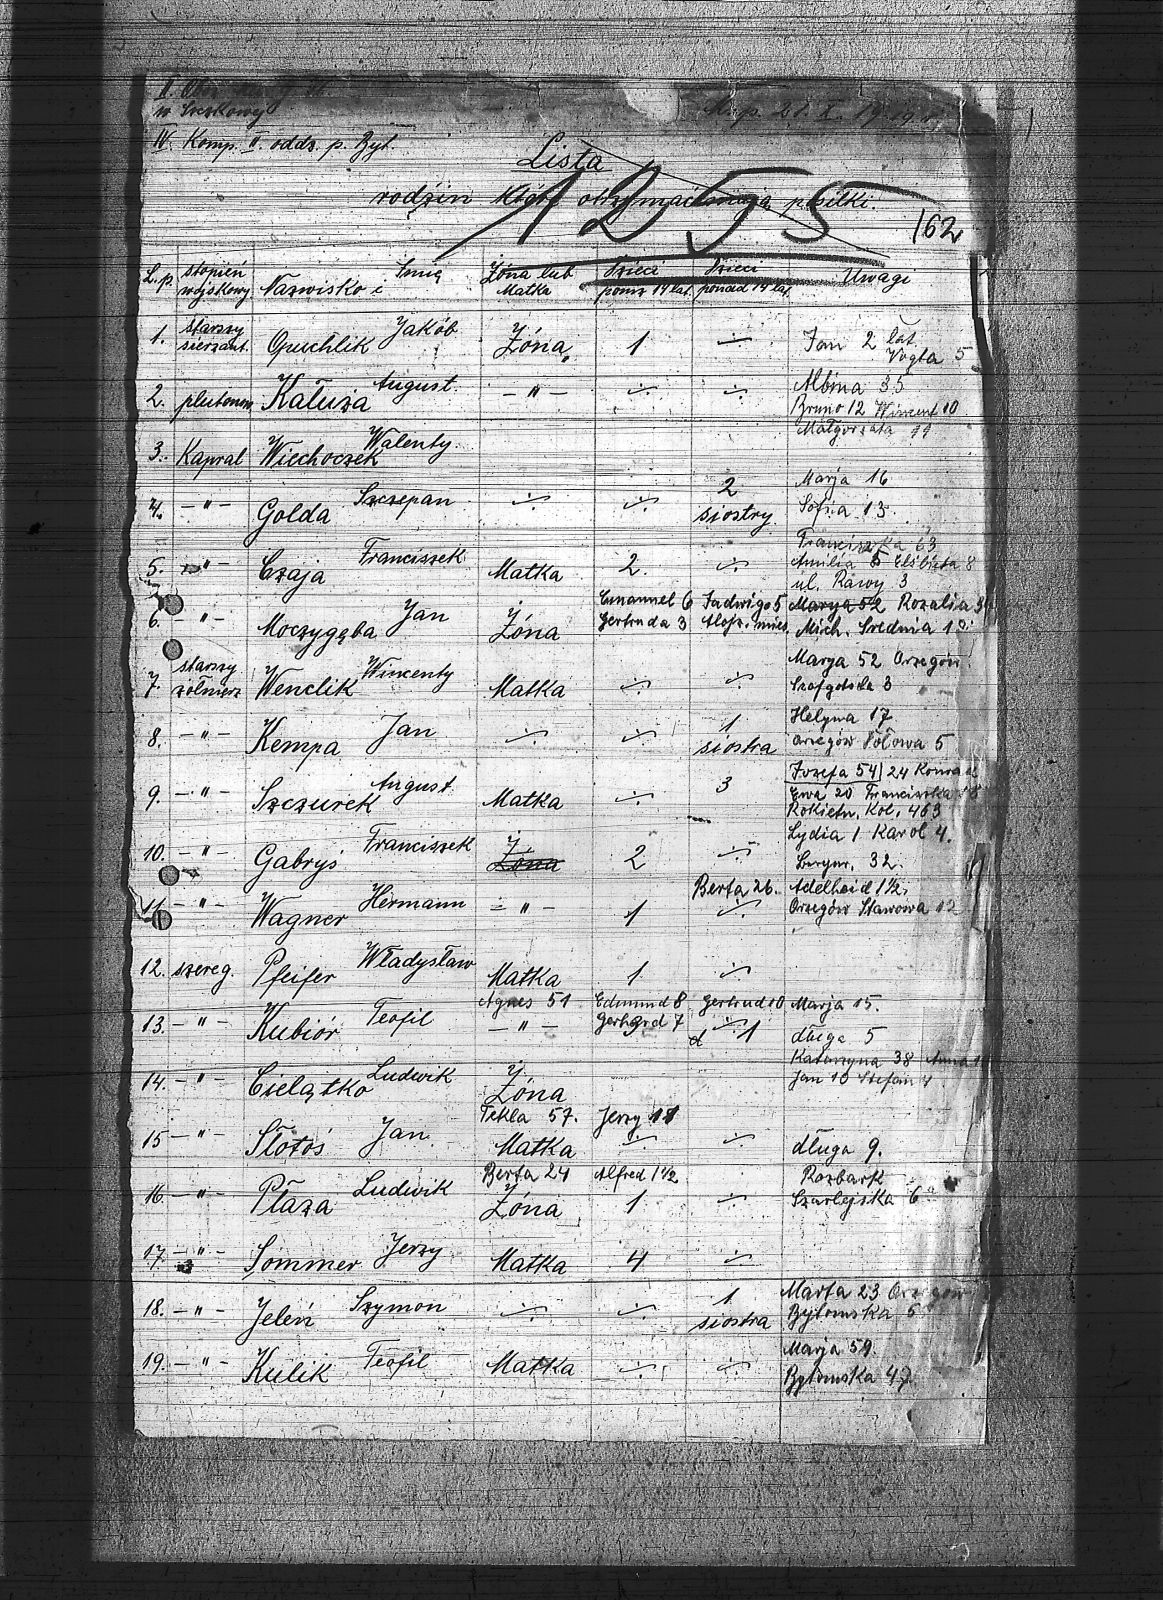 w Szczkowy
IV. Komp. II. oddz. p. Byt.
Lista
rodzin które otrzymać mają posilki.
1255
162
L.p. stopień wojskowy Nazwisko i Imię Żóna lub Matka Dzieci poniż 14 lat. Dzieci ponad 14 lat. Uwagi
1. starszy sierżant. Jakób Żóna 1 ÷ Jan 2 lat
Vogta 5
2. pluton. Kałuża August — " — ÷ ÷ Albina 35
Bruno 12 Wincent 10
Małgorzata 11
3. Kapral Wiechoczek Walenty
4. — " — Golda Szczepan ÷ ÷ 2 siostry Marja 16
Sofia 13
Franciszka 63
5. — " — Czaja Franciszek Matka 2. ÷ Amilia 5 Elżbieta 8
ul. Rawy 3
Emanuel 6 Jadwiga 5 Marya 52 Rozalia
6. — " — Moczygęba Jan Żóna Gertruda 3 Alojz. mies. Mich. Srednia
7. starszy żołnierz Wenclik Wincenty Matka ÷ ÷ Marya 52 Orzegów
3
8. — " — Kempa Jan ÷ ÷ 1 siostra Helyna 17
Orzegów Polowa 5
9. — " — Szczurek August Matka ÷ 3 Jozefa 54 / 24 Konrad
Ewa 20 Franciszka 18
Rokietn. Kol. 463
10. — " — Gabryś Franciszek Żóna 2 ÷ Lydia 1 Karol 4.
Berger. 32.
Berta 26. Adelheid 1½
11. — " — Wagner Hermann — " — 1 ÷ Orzegów Stawowa 12
12. szereg. Pfeifer Władysław Matka 1. ÷
Agnes 51 Edmund 8 Gertrud 10 Marja 15.
13. — " — Kubiór Teofil — " — Gerhard 7 ÷ 1 długa 5
Katarzyna 38 Anna
14. — " — Cielątko Ludwik Żóna Jan 10 Stefan 4
Tekla 57. Jerzy 11
15. — " — Słotoś Jan Matka ÷ ÷ długa 9.
Berta 24 Alfred 1½ Rozbark
16. — " — Płaza Ludwik Żóna 1. ÷ Szarlejska 6a
17. — " — Sommer Jerzy Matka 4 ÷
18. — " — Jeleń Szymon ÷ ÷ 1 siostra Marta 23 Orzegów
Bytomska 5
19. — " — Kulik Teofil Matka ÷ ÷ Marja 59.
Bytomska 47